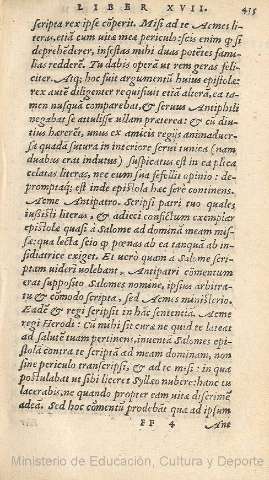 LIBER XVII. 435
scripta rex ipse cōperit. Misi ad te Acmes lit
teras, etiā cum uitæ meæ periculo: scis enim ꝙ si
deprehēderer, infestas mihi duas potētes fami-
lias redderē. Tu dabis operā ut rem geras feli-
citer. Atq; hoc fuit argumentū huius epistolæ:
rex autē diligenter requisiuit etiā alterā, ea ta-
men nusquā comparebat, & seruus Antiphili
negabat se attulisse ullam præterea: & cū diu-
tius hæreret, unus ex amicis regijs animaduer-
sa quadā sutura in interiore serui tunica (nam
duabus erat indutus) suspicatus est in ea plica
celatas literas, nec eum sua fefellit opinio: de-
promptaq; est inde epistola hæc serē continens.
Acme Antipatro. Scripsi patri tuo quales
iussisti literas, & adieci confictum exemplar
epistolæ quasi à Salome ad dominā meam mis-
sæ: qua lecta scio ꝙ pœnas ab ea tanquā ab in-
sidiatrice exiget. Et uerò quam à Salome scri-
ptam uideri uolebant, Antipatri cōmentum
erat supposito Salomes nomine, ipsius arbitra-
tu & cōmodo scripta, sed Acmes ministerio.
Eadē & regi scripsit in hāc sententiā. Acme
regi Herodi: Cū mihi sit curæ ne quid te lateat
ad salutē tuam pertinens, inuenta Salomes epi-
stola contra te scripta ad meam dominam, non
sine periculo transcripsi, & ad te misi: in qua
postulabat ut sibi liceret Syllæo nubere: hanc tu
lacerabis, ne quando propter eam uitæ discrimē
adeā. Sed hoc cōmentū prodebat quæ ad ipsum
FF 4 Ant
Ministerio de Educación, Cultura y Deporte